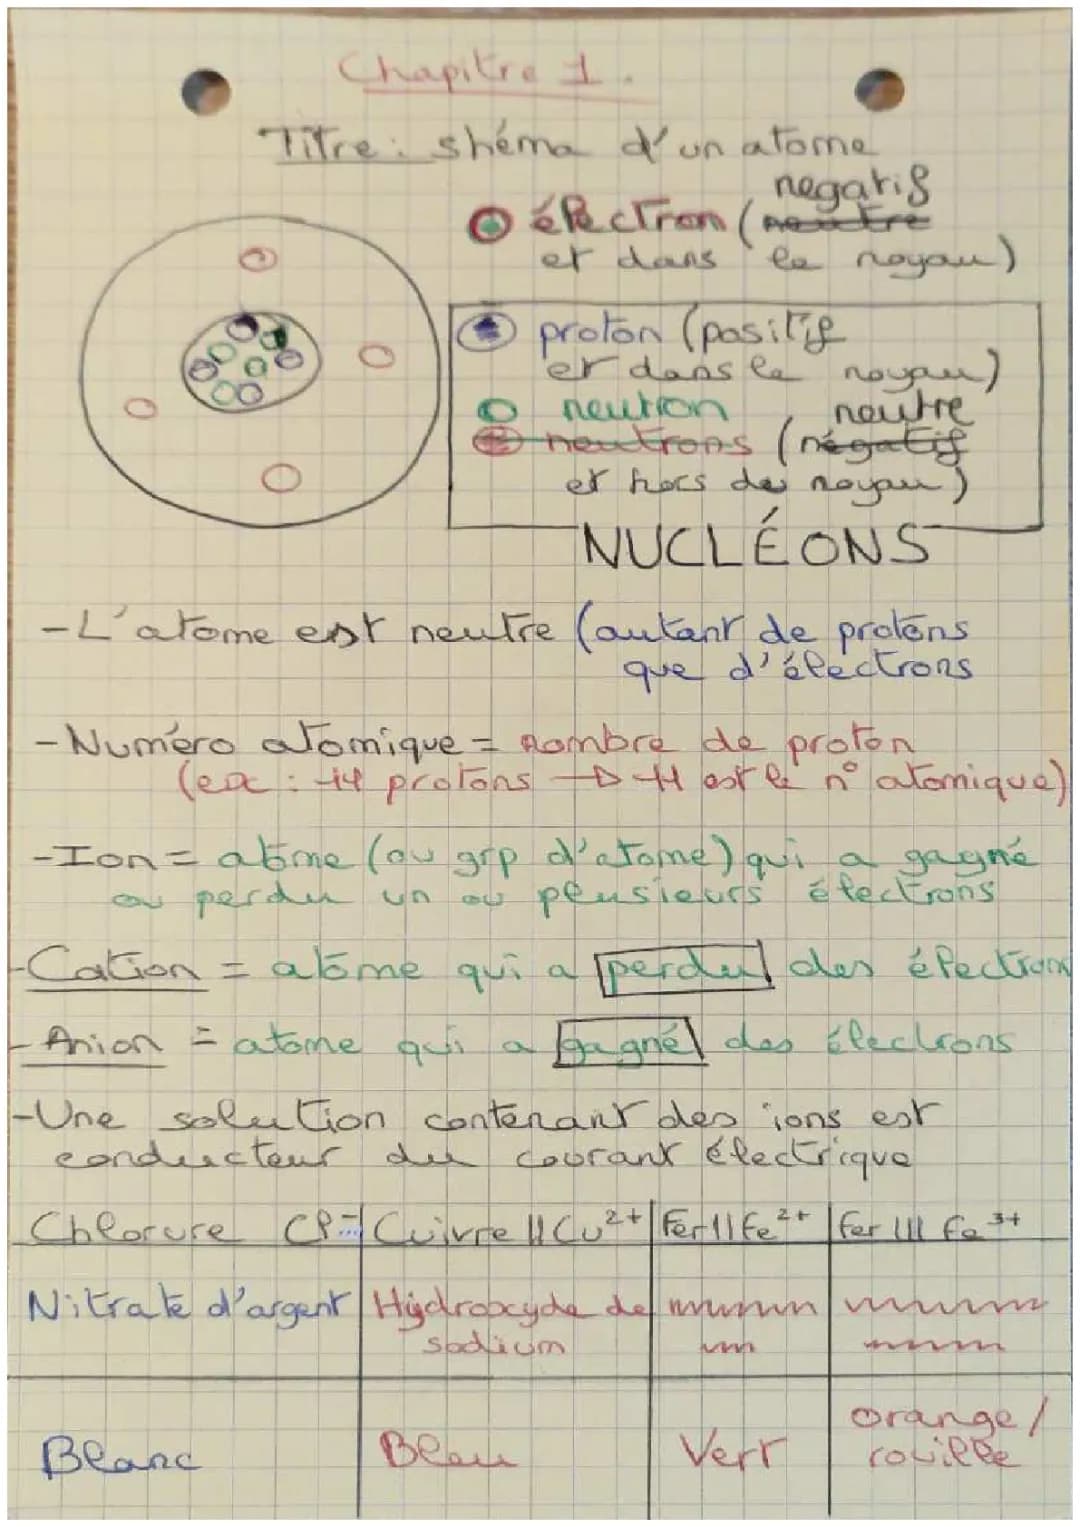 Chapitre 1.
Titre : shéma d'un atome
negatif
électron (neutre
et dans le noyau)
proton (positif
et dans le noyau)
neutron neutre
neutrons (négatif
et hors des noyau)
NUCLÉONS
-L'atome est neutre (autant de protons
que d'électrons
-Numéro atomique = nombre de proton
(ex : 14 protons → 14 est le n° atomique)
-Ion = atome (ou grp d'atome) qui a gagné
ou perdu un ou plusieurs électrons
-Cation = atome qui a perdu des électrons
-Anion = atome qui a gagné des électrons
-Une solution contenant des ions est
conducteur du courant électrique
Chlorure Cl- Cuivre II Cu²⁺ Fer II Fe²⁺ Fer III Fe³⁺
Nitrate d'argent Hydroxyde de
sodium
orange/
Blanc Bleu Vert rouille